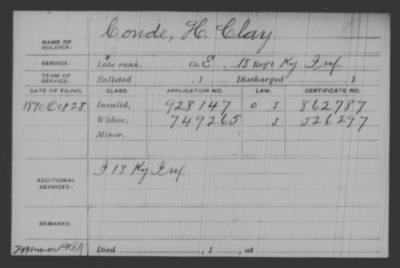 NAME OF SOLDIER: Conde, H. Clay
SERVICE: Late rank, Co. E, 18 Reg't Ky Inf
TERM OF SERVICE: Enlisted , 1 Discharged , 1
DATE OF FILING. CLASS. APPLICATION NO. LAW. CERTIFICATE NO.
1890 Oct 28 Invalid, 928147 O J 862787
Widow, 749265 J 526297
Minor,
ADDITIONAL SERVICES: I 18 Ky Inf
REMARKS:
Died , 1 , at